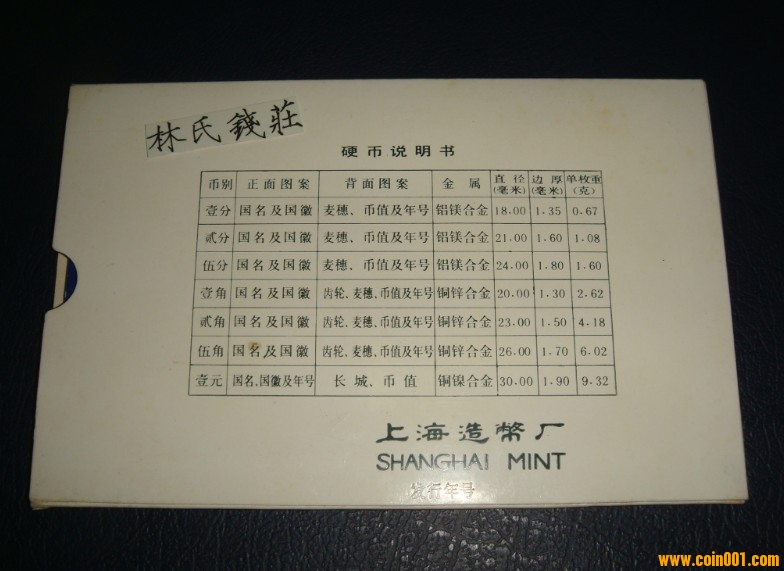 林氏錢莊
硬币说明书
币别 正面图案 背面图案 金属 直径(毫米) 边厚(毫米) 单枚重(克)
壹分 国名及国徽 麦穗、币值及年号 铝镁合金 18.00 1.35 0.67
贰分 国名及国徽 麦穗、币值及年号 铝镁合金 21.00 1.60 1.08
伍分 国名及国徽 麦穗、币值及年号 铝镁合金 24.00 1.80 1.60
壹角 国名及国徽 齿轮、麦穗、币值及年号 铜锌合金 20.00 1.30 2.62
贰角 国名及国徽 齿轮、麦穗、币值及年号 铜锌合金 23.00 1.50 4.18
伍角 国名及国徽 齿轮、麦穗、币值及年号 铜锌合金 26.00 1.70 6.02
壹元 国名、国徽及年号 长城、币值 铜镍合金 30.00 1.90 9.32
上海造幣厂
SHANGHAI MINT
发行年号
www.coin001.com